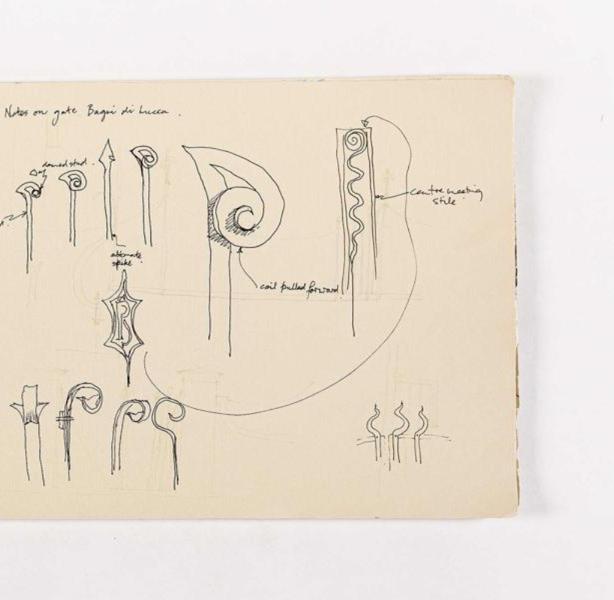 Notes on gate Bagni di Lucca.
domed stud.
alternate
spike.
coil pulled forward
centre meeting
stile.
R